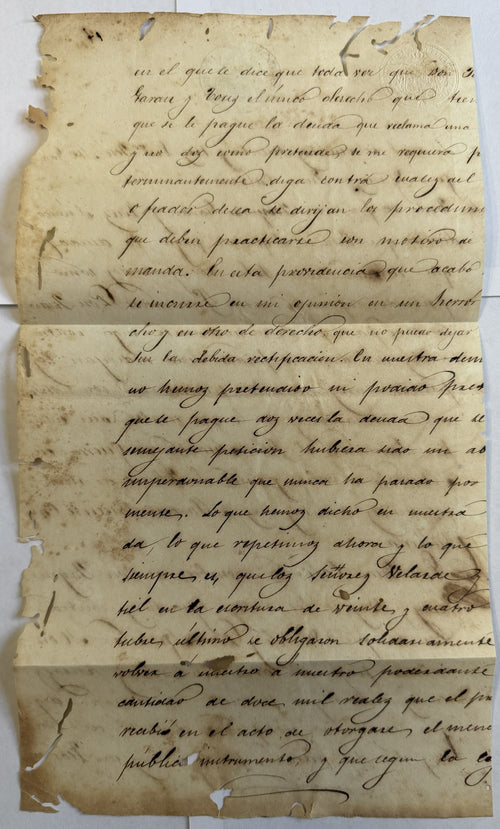 en el que le dice que toda vez que Don
Garau y Tous el único derecho que tien
que se le pague la deuda que reclama una
y no dos como pretende, se me requiera p
terminantemente diga contra cualez del
deudor desea se dirijan los procedime
que deben practicarse con motivo de
manda. En esta providencia que acabo
se incurre en mi opinion en un herror
cho y en otro de derecho que no puedo dejar
sin la debida rectificacion. En nuestra dem
no hemos pretendido ni podido pret
que se pague dos veces la deuda que se
semejante peticion hubiera sido un ab
imperdonable que nunca ha pasado por
mente. Lo que hemos dicho en nuestra
da, lo que repetimos ahora y lo que
siempre es, que los Señores Velarde y
tiel en la escritura de veinte y cuatro
tubre ultimo se obligaron solidariamente
volver á nuestro á nuestro poderdante
cantidad de doce mil reales que el pr
recibió en el acto de otorgarse el menc
públic instrumento y que segun la